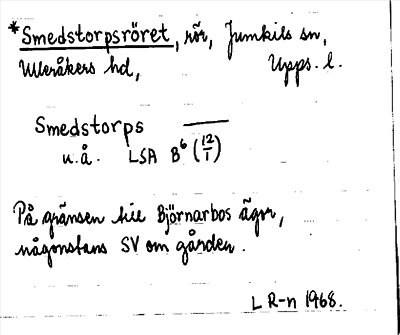 *Smedstorpsröret, rör, Jumkils sn,
Ulleråkers hd, Upps. l.
Smedstorps ———
u.å. LSA B⁶ (12/1)
På gränsen till Björnarbos ägor,
någonstans SV om gården.
L R-n 1968.